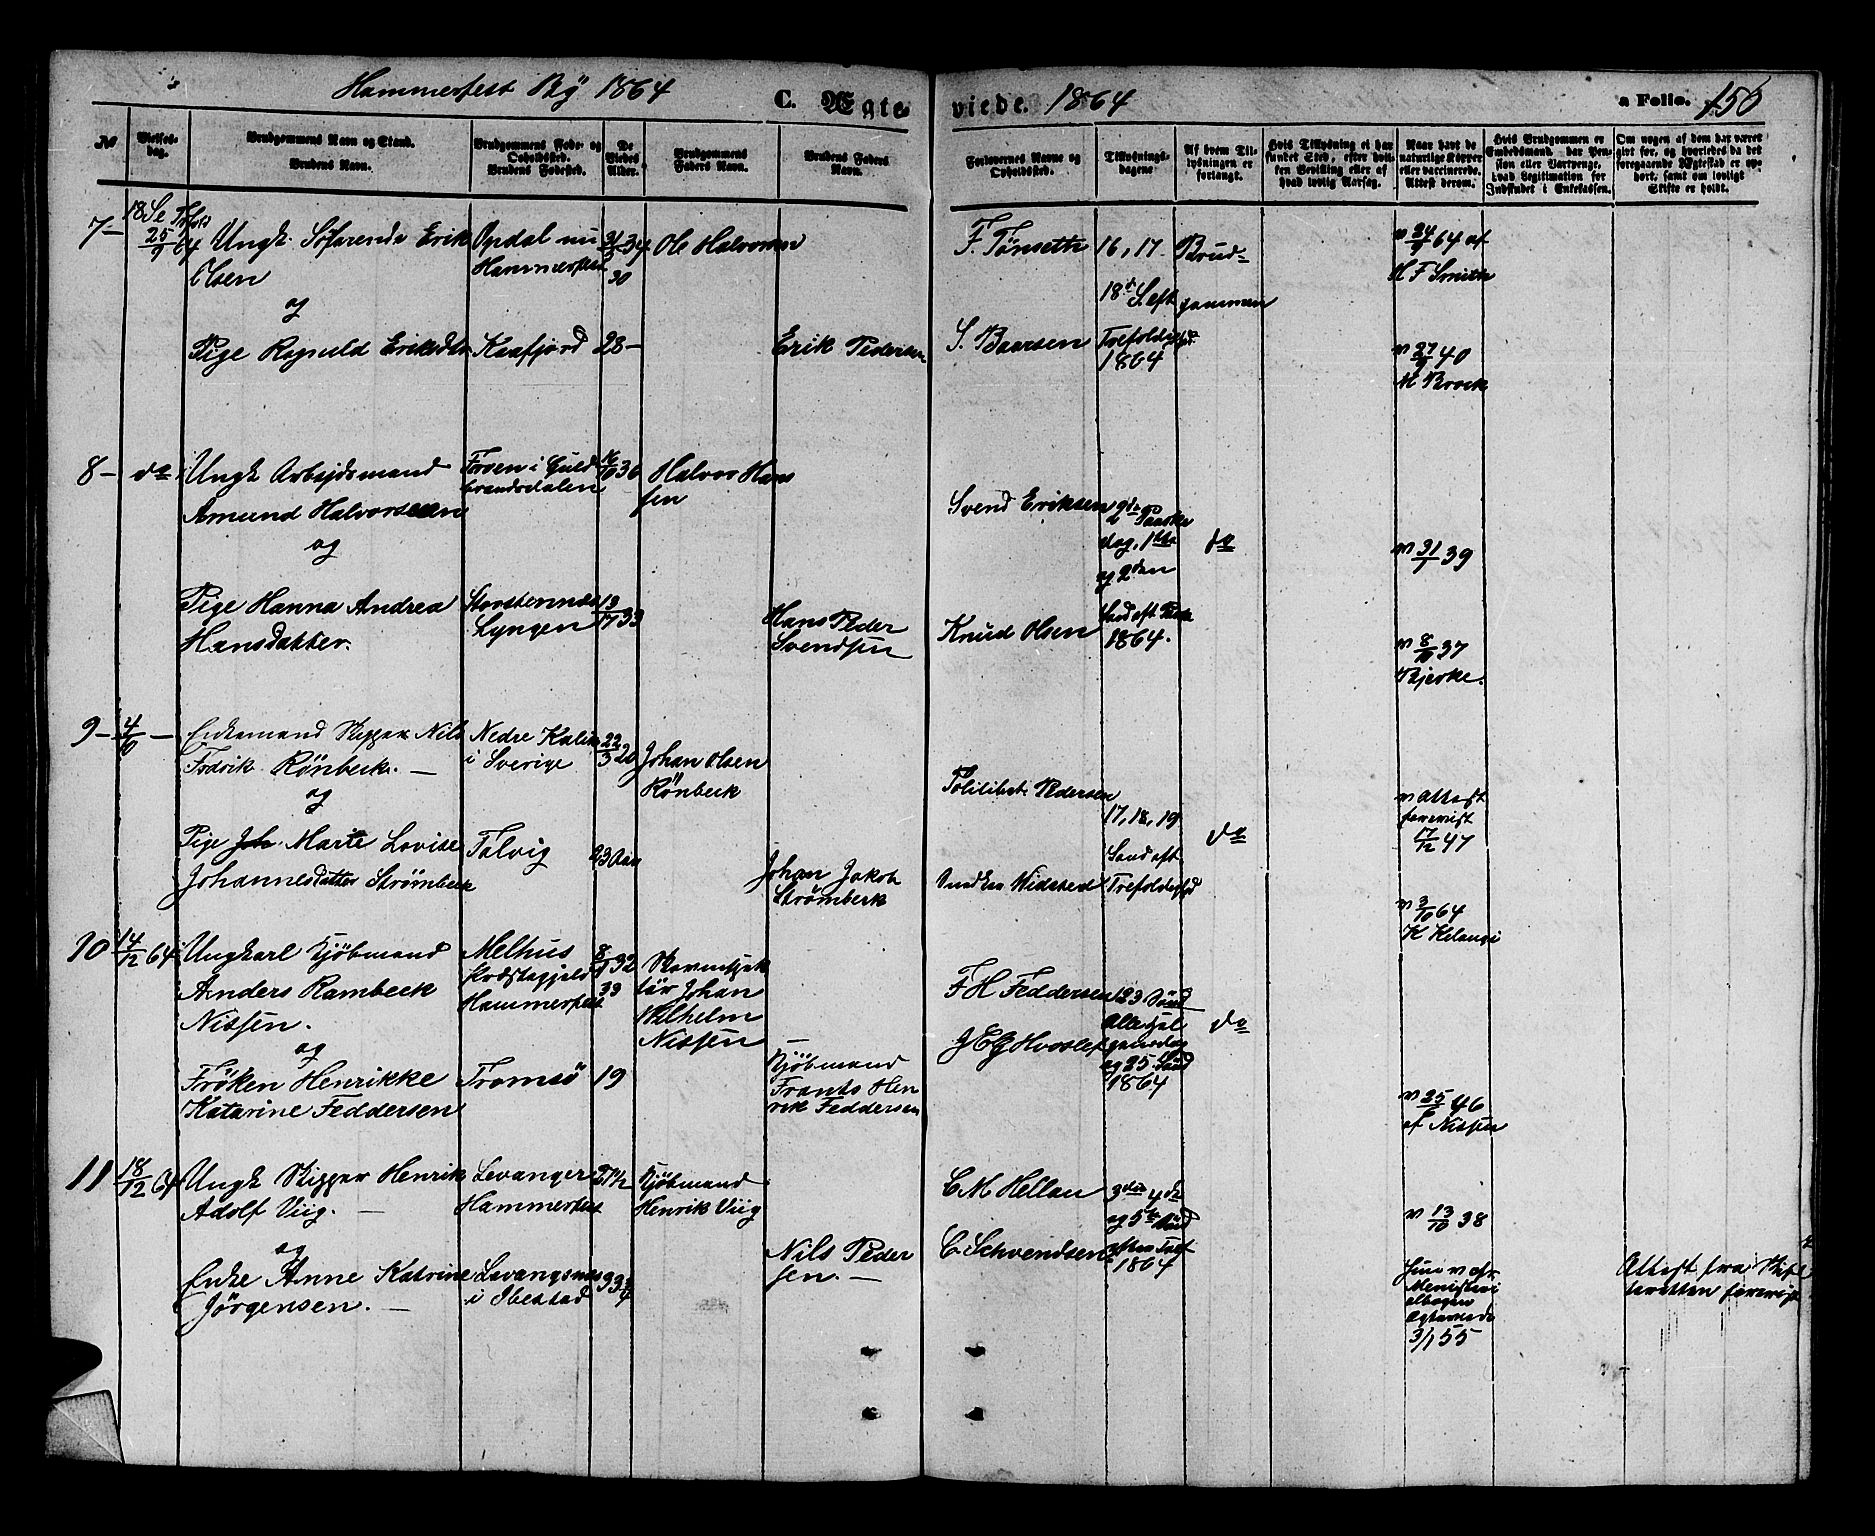 Hammerfest By 1864
C. Ægte-
viede. 1864
a Folio. 150
No
Vielses-dag.
Brudgommens Navn og Stand.
Brudens Navn.
Brudgommens Føde- og Opholdssted.
Brudens Fødested.
De Viedes Alder.
Brudgommens Faders Navn.
Brudens Faders Navn.
Forlovernes Navne og Opholdssted.
Tillysnings-dagene
Af hvem Tillysningen er forlangt.
Hvis Tillysning ei har fundet Sted, efter hvilken Bevilling eller af hvad lovlig Aarsag.
Naar havt de naturlige Kopper eller vaccinerede. Attest derom.
Hvis Brudgommen er Embedsmand, har Pension eller Vartpenge, hvad Legitimation for Indskudet i Enkekassen.
Om nogen af dem har været gift før, og hvorledes da det foregaaende Ægteskab er ophørt, samt om lovligt Skifte er holdt.
7-
18 Se Trfold
25/9 64
Ungk. Søfarende Erik
Olsen
og
Pige Ragnild Eriksdtr
Opdal nu
Hammerfest
Kaafjord
30
28-
Ole Halvorsen
Erik Pedersen
F. Tønseth
S. Baarsen
16, 17
18de S. eft
Trefoldighd
1864
Brud-
gommen
v 24/9 64 af
H F Smith
v 27/9 40
M Brock
8-
do
Ungk Arbejdsmand
Amund Halvorsen
og
Pige Hanna Andrea
Hansdatter.
Froen i Guld
brandsdalen
Storstennæs
Lyngen
16/10 36
13/7 33
Halvor Hans
sen
Hans Peder
Svendsen
Svend Eriksen
Knud Olsen
2den Paaske
dag, 1ste
og 2den
Sønd eft Paaske
1864.
do
v 31/1 39
v 8/10 37
Bjerke.
9-
4/10 -
Enkemand Skipper Nils
Fredrik Rönbeck. -
og
Pige Marie Lovise
Johannesdatter Strømbeck
Nedre Kalix
i Sverige
Talvig
22/3 20
23 Aar
Johan Olsen
Rönbeck
Johan Jakob
Strømbeck
Politibet. Pedersen
Snedker Widsted
17, 18, 19
Sønd eft
Trefoldighd
do
v Attest
forevist
17/12 47
v 3/10 64
K Kelangi
10
14/12 64
Ungkarl Kjöbmand
Anders Rambeck
Nissen.
og
Fröken Henrikke
Katarine Feddersen
Melhus
Præstegjeld
Hammerfest
Tromsö
8/9 32
33
19
Johan
Wilhelm
Nissen
Kjöbmand
Frants Hen
rik Feddersen
F H Feddersen
J C G Hvoslef
23 Sönd
Allehel
gensdag
og 25 Sönd
1864
do
v 25/5 46
af Nissen
11
18/12 64
Ungk Skipper Henrik
Adolf Viig. -
og
Enke Anne Katrine
Jörgensen. -
Levanger
Hammerfest
Levangsnes
i Ibestad
33 3/4
Kjöbmand
Henrik Viig
Nils Peder
sen. -
C M Hellan
C. Schvendsen
3die 4de
og 5te Sönd
1864
v 13/10 38
3/1 55
Attest fra Skifte
retten forevist